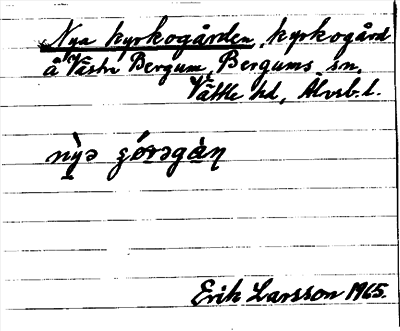 Nya kyrkogården, kyrkogård
å Västra Bergum, Bergums sn,
Vättle hd, Älvsb. l.
nỳə
Erik Larsson 1965.